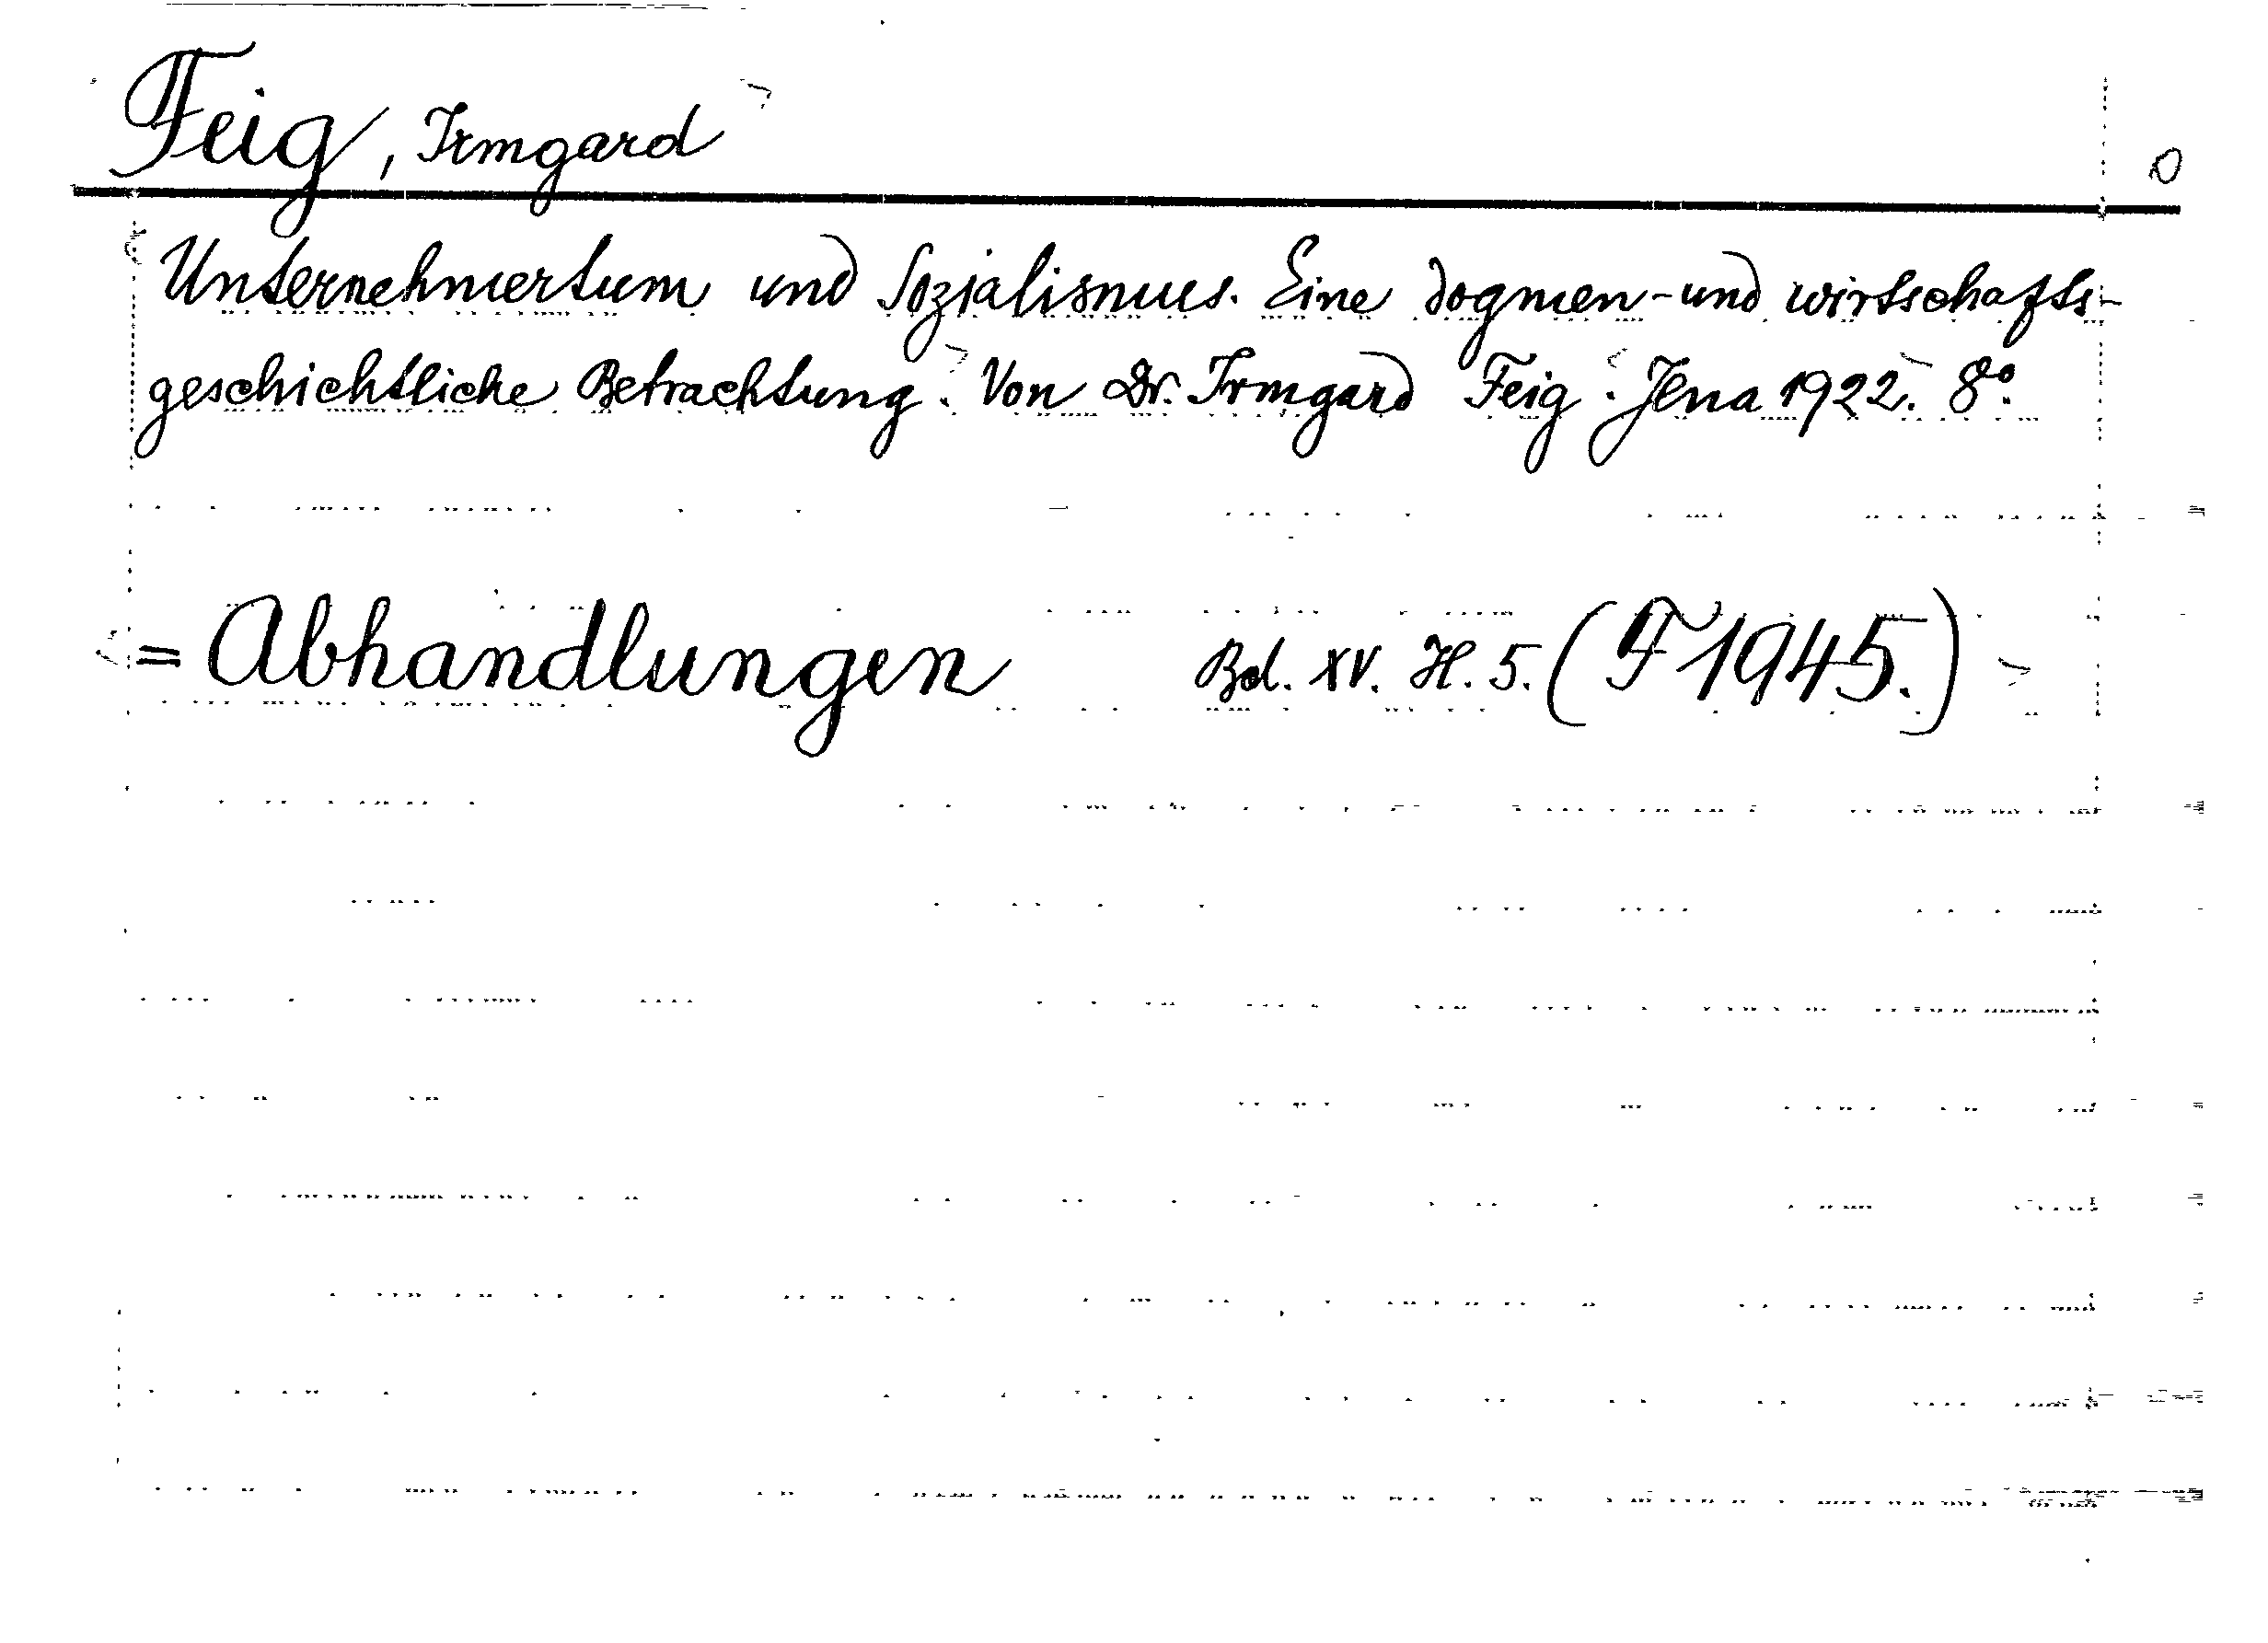 Feig, Irmgard
Unternehmertum und Sozialismus. Eine dogmen- und wirtschafts-
geschichtliche Betrachtung. Von Dr. Irmgard Feig. Jena 1922. 8°.
= Abhandlungen Bd. XV. H. 5. (F 1945.)